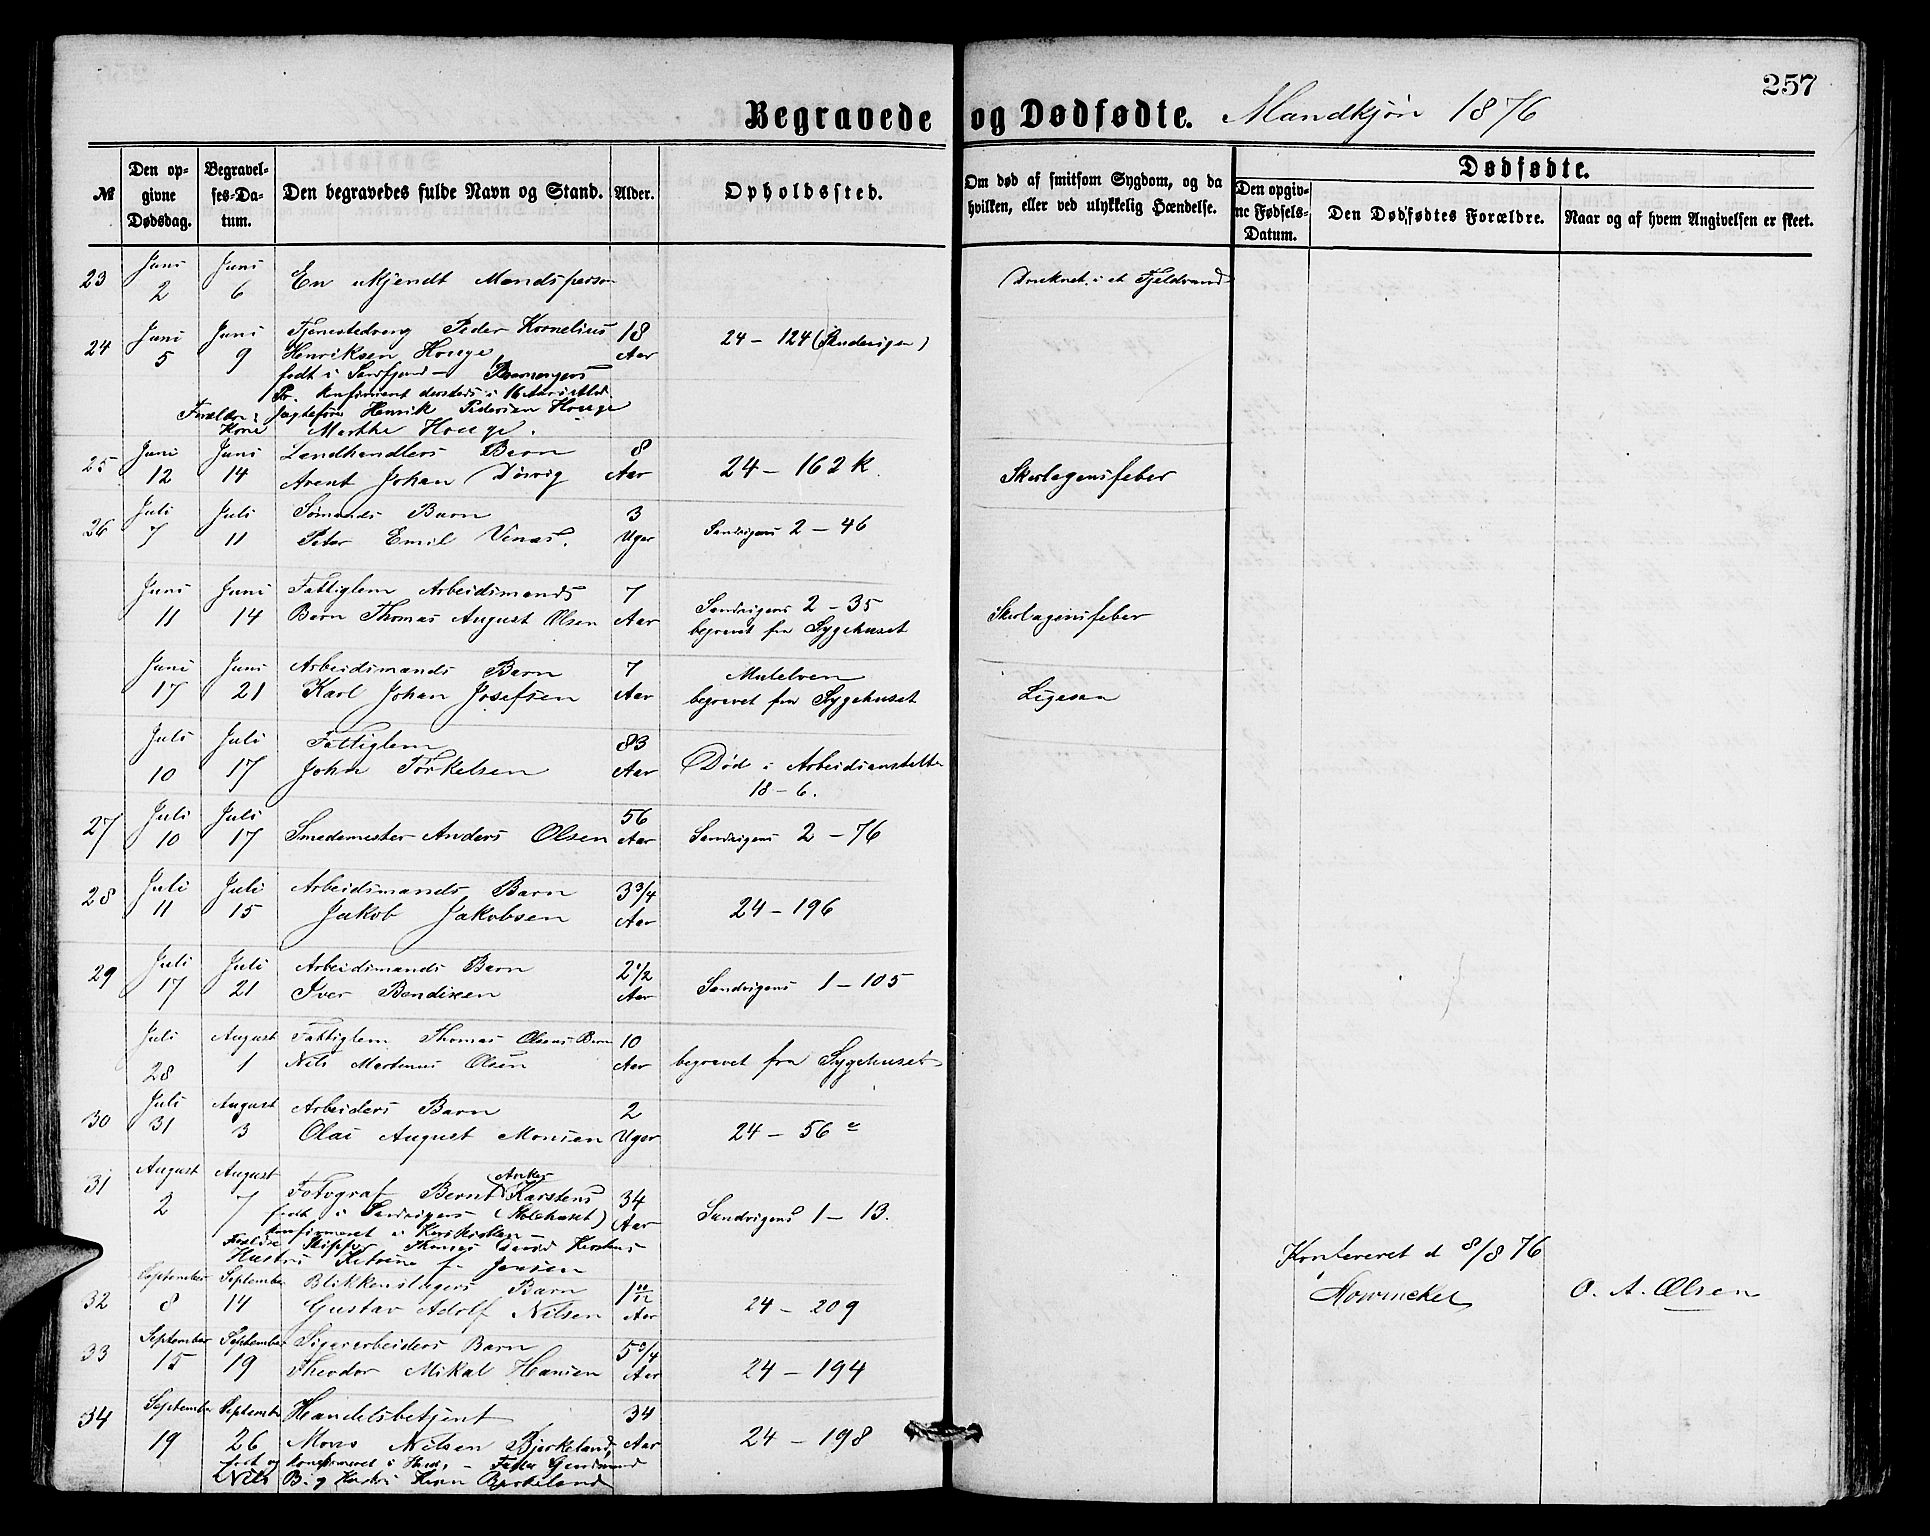 257
Begravede og Dødfødte. Mandkjøn 1876
№
Den opgivne Dødsdag.
Begravelses-Datum.
Den begravedes fulde Navn og Stand.
Alder.
Opholdssted.
Om død af smitsom Sygdom, og da hvilken, eller ved ulykkelig Hændelse.
Dødfødte.
Den opgivne Fødsels-Datum.
Den Dødfødtes Forældre.
Naar og af hvem Angivelsen er skeet.
23 Juni 2 Juni 6 En ukjendt Mandsperson
Druknet i et Fjeldvand
24 Juni 5 Juni 9 Tjenestedreng Peder Kornelius 18 Aar 24 - 124
Henriksen Houge
født i
Pr. Konfirmeret dersteds i 16 Aars Ald.
Forældre: Jagtefører Henrik Pedersen Houge
Kone Marthe Houge.
25 Juni 12 Juni 14 Landhandlers Barn 8 Aar 24 - 162 k.
Arent Johan
Skarlagensfeber
26 Juli 7 Juli 11 Sømands Barn 3 Uger Sandvigens 2 - 46
Peter Emil
Juni 11 Juni 14 Fattiglem Arbeidsmands 7 Aar Sandvigens 2 - 35
Barn Thomas August Olsen begravet fra Sygehuset
Skarlagensfeber
Juni 17 Juni 21 Arbeidsmands Barn 7 Aar Mulelven
Karl Johan Josefsen begravet fra Sygehuset
Ligesaa
Juli 10 Juli 17 Fattiglem 83 Aar Død i Arbeidsanstalten
John Torkelsen 18 - 6.
27 Juli 10 Juli 17 Smedemester Anders Olsen 56 Aar Sandvigens 2 - 76
28 Juli 11 Juli 15 Arbeidsmands Barn 3 3/4 Aar 24 - 196
Jakob Jakobsen
29 Juli 17 Juli 21 Arbeidsmands Barn 2 1/2 Aar Sandvigens 1 - 105
Iver Bendixen
Juli 28 August 1 Fattiglem Thomas Olsens Barn 10 Aar begravet fra Sygehuset
Nils Martinus Olsen
30 Juli 31 August 3 Arbeiders Barn 2 Uger 24 - 56
Olai August Monsen
31 August 2 August 7 Fotograf Bernt Anker Karstens 34 Aar Sandvigens 1 - 13.
født i Sandvigens
konfirmeret i Korskirken
Forældre Skipper Thomas David Karstens
Hustru f. Jensen
Konfereret d 8/8 76
32 September 8 September 14 Blikkenslagers Barn 1 Aar 24 - 209
Gustav Adolf Nilsen
O. A. Olsen
33 September 15 September 19 Sigararbeiders Barn 5 3/4 Aar 24 - 194
Theodor Mikal Hansen
34 September 19 September 26 Handelsbetjent 34 Aar 24 - 198
Mons Nilsen Bjerkeland,
født og konfirmeret i
Nils B. og Hustru